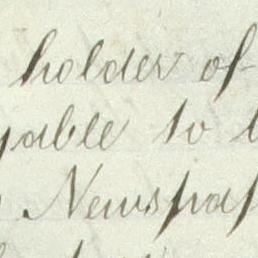 holder of
yable to
Newspap